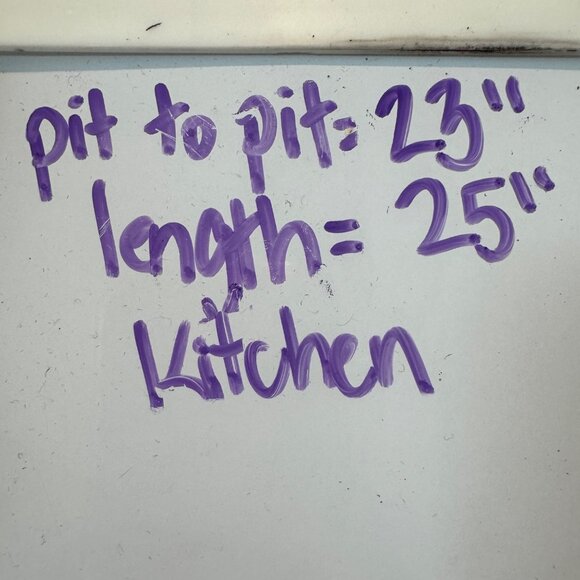 pit to pit= 23"
length= 25"
Kitchen